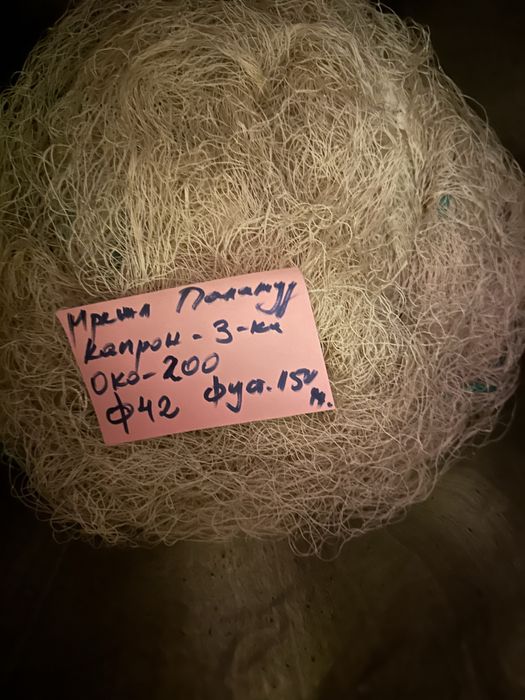 Мрежа Паламуд
Капрон - 3-ка
Око - 200
Ф42 фус. 150 м.